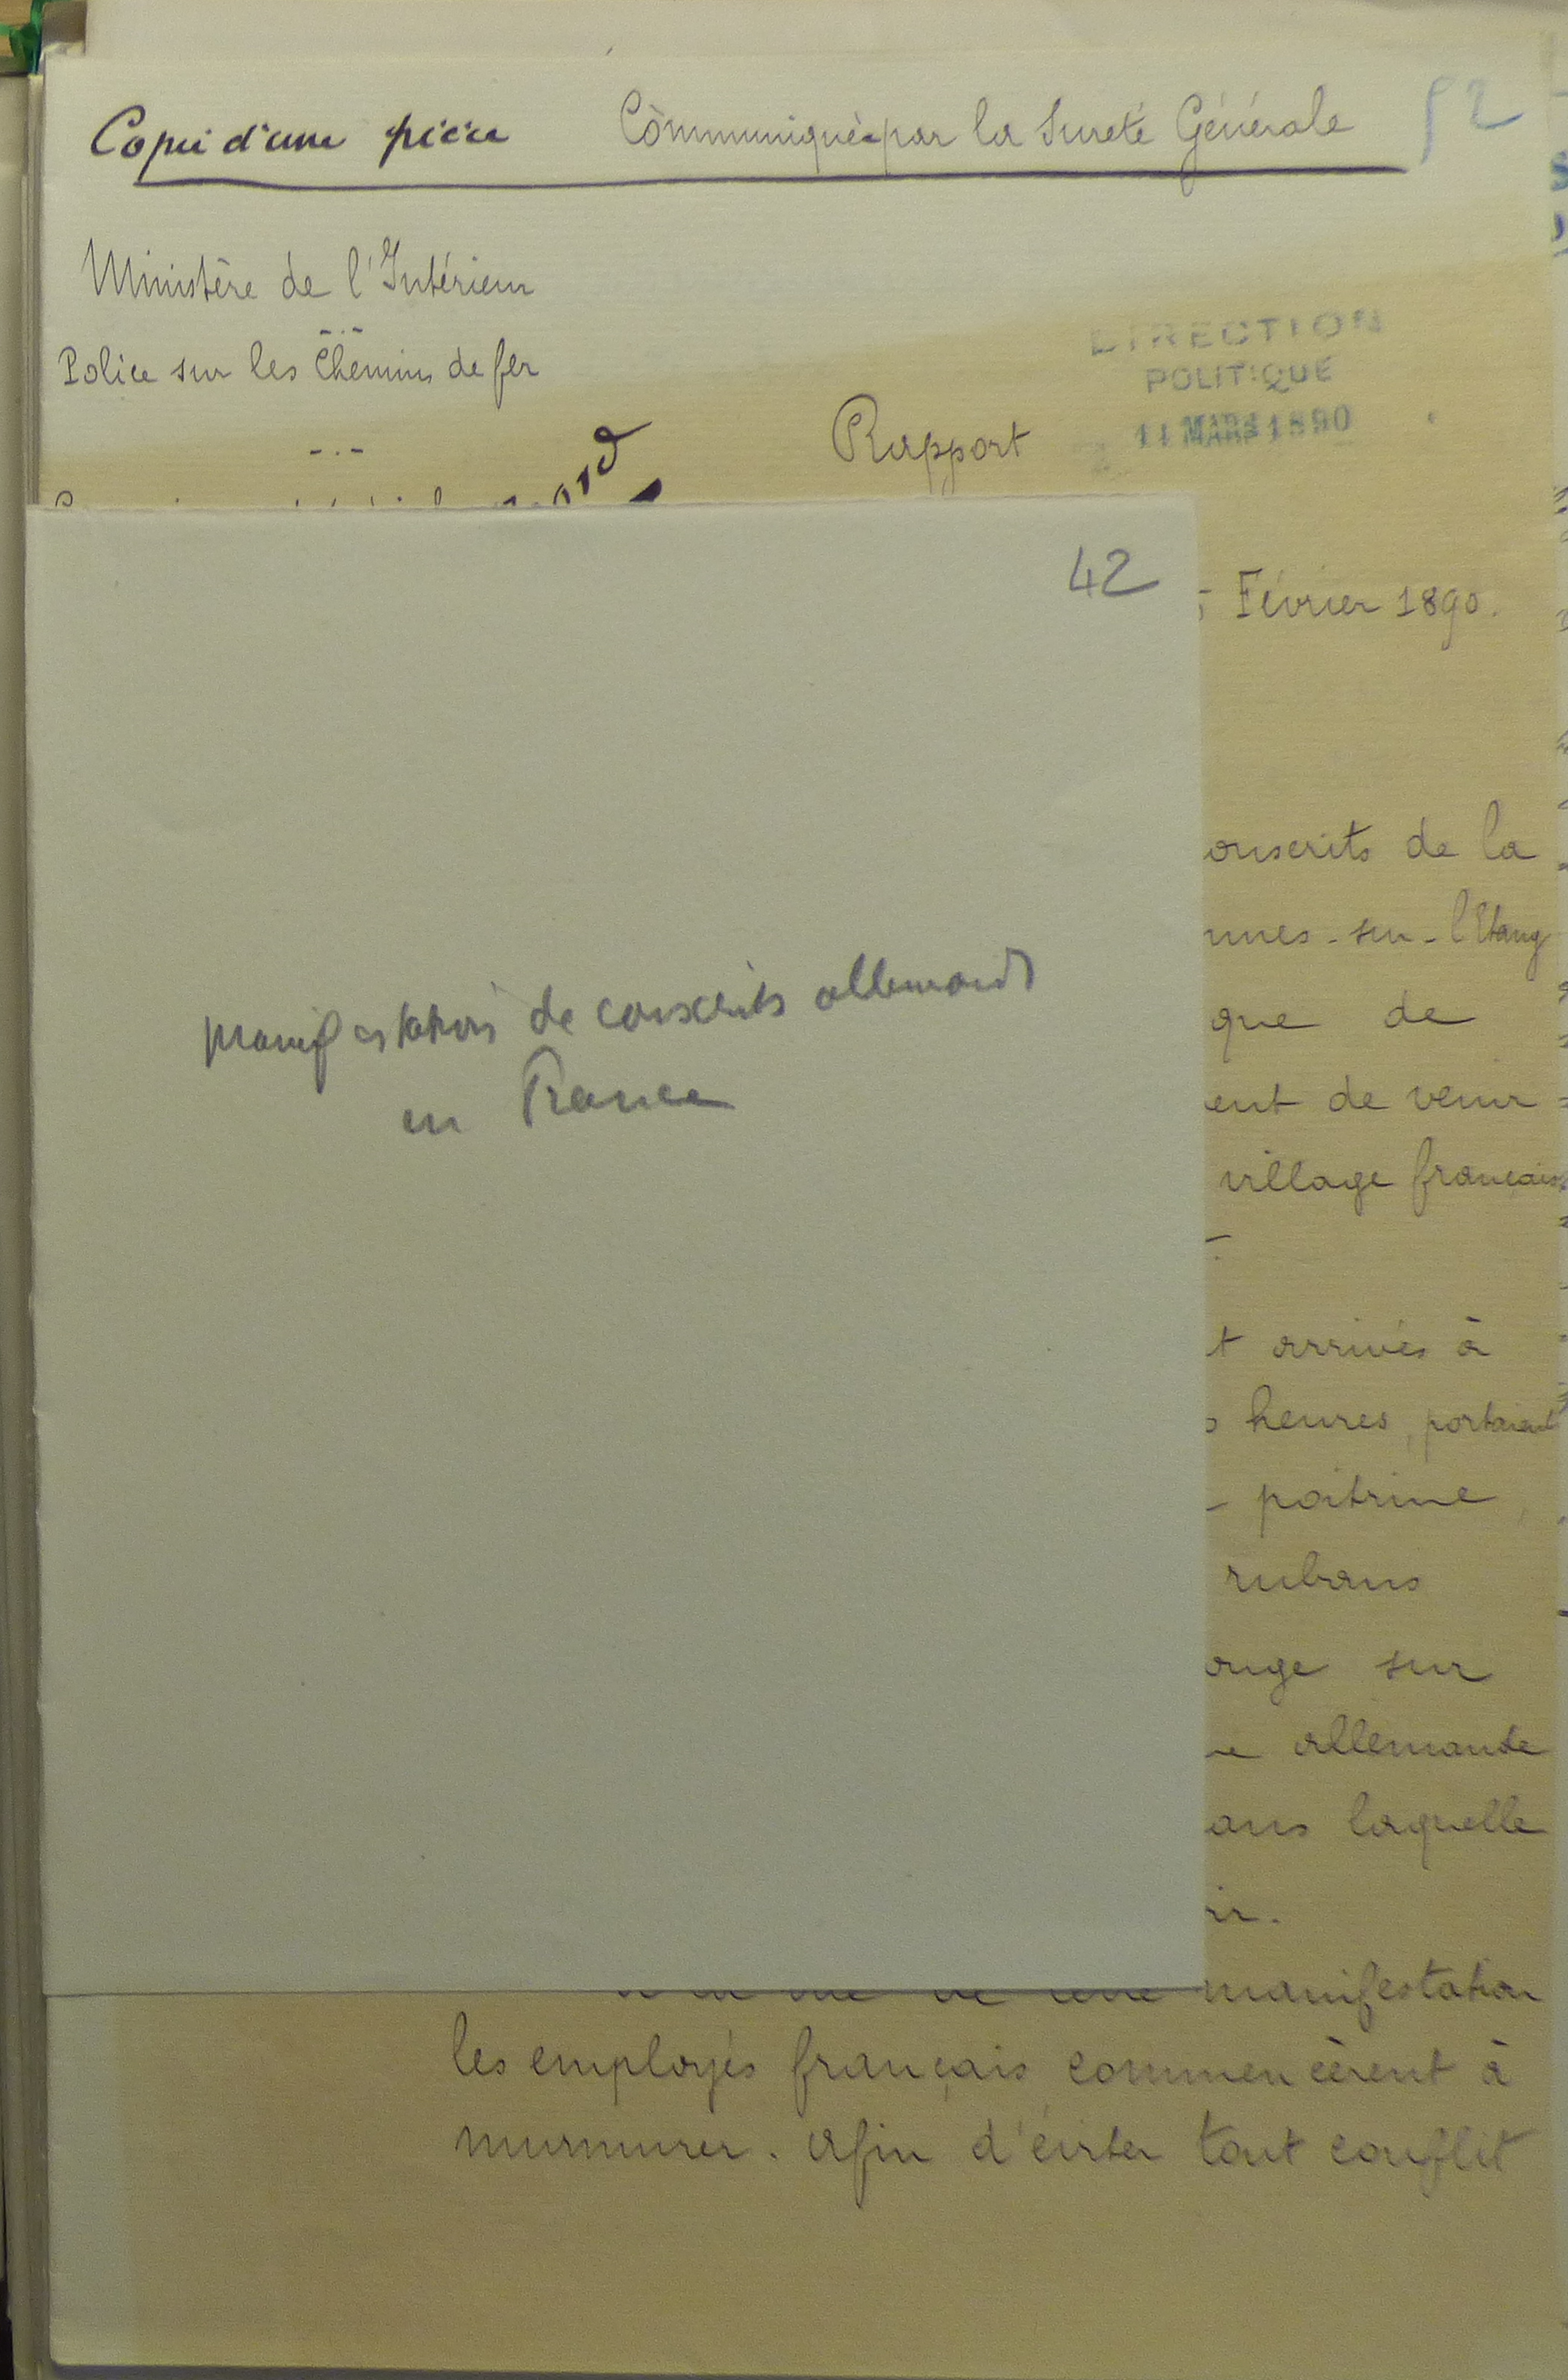 Copie d'une pièce Communiquée par la Sureté Générale 52
Ministère de l'Intérieur
Police sur les Chemins de fer
Rapport
DIRECTION
POLITIQUE
11 MARS 1890
42
Février 1890.
manifestations de conscrits allemands
en France
onscrits de la
nnes-sur-l'Etang
que de
ent de venir
village français
t arrivés à
heures, portaient
poitrine,
rubans
ouge sur
e allemande
ans laquelle
ir.
manifestation
les employés français commencèrent à
murmurer. Afin d'éviter tout conflit